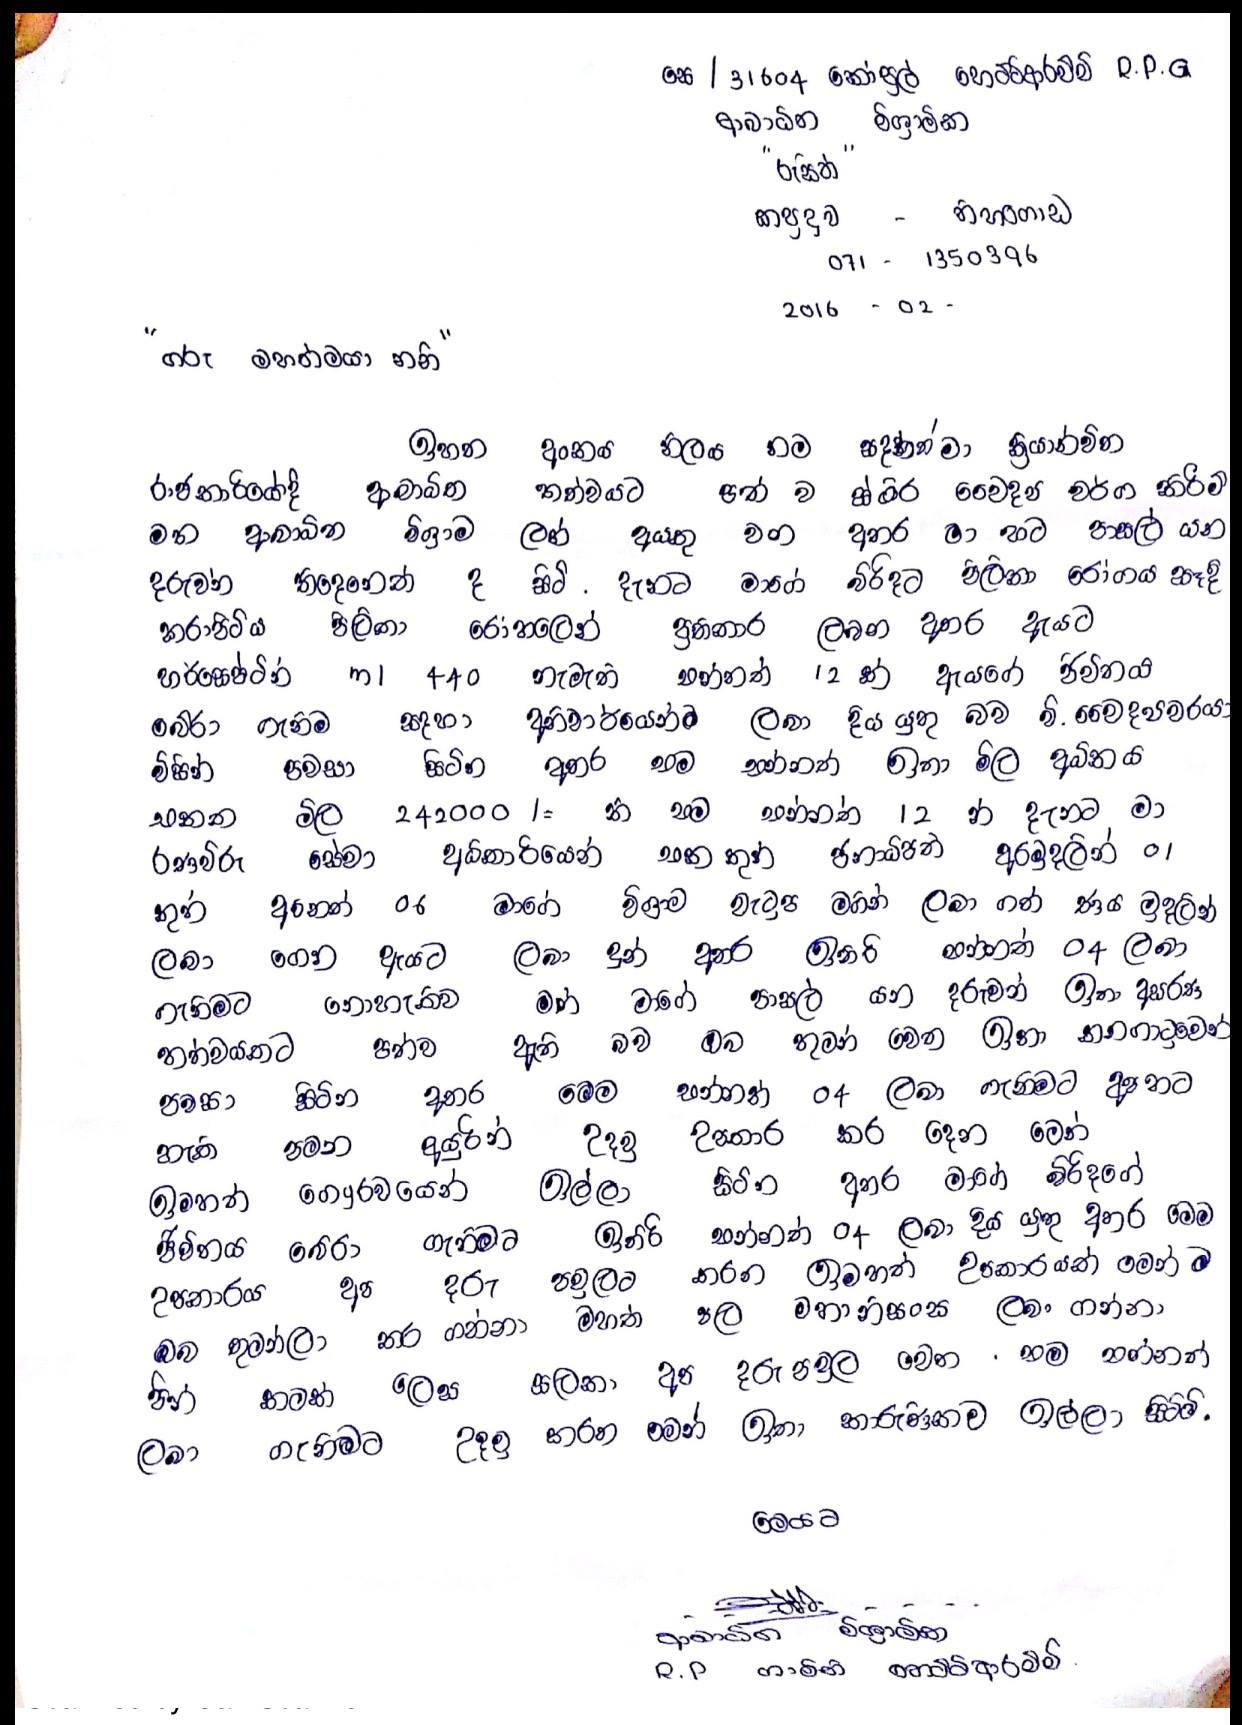 සෙ / 31604 කෝප්‍රල් හෙට්ටිආරච්චි R.P.G
ආබාධිත විශ්‍රාමික
"රුසිත්"
කපුදූව - තිහගොඩ
071 - 1350396
2016 - 02 -
"ගරු මහත්මයා නනි"
ඉහත අංකය නිලය නම සඳහන් මා ක්‍රියාන්විත
රාජකාරියේදී ආබාධිත තත්වයට පත් ව ස්ථිර වෛද්‍ය වර්ග කිරීම්
මත ආබාධිත විශ්‍රාම ලත් අයකු වන අතර මා හට පාසල් යන
දරුවන් තිදෙනෙක් ද සිටී. දැනට මාගේ බිරිදට පිලිකා රෝගය සෑදී
කරාපිටිය පිලිකා රෝහලෙන් ප්‍රතිකාර ලබන අතර ඇයට
හර්සෙප්ටින් ml 440 නැමැති එන්නත් 12 ක් ඇයගේ ජීවිතය
බේරා ගැනීම සදහා අනිවාර්යෙන්ම ලබා දිය යුතු බව වි. වෛද්‍යවරයා
විසින් පවසා සිටින අතර එම එන්නත් ඉතා මිල අධිකය
එකක මිල 242000 /= කි එම එන්නත් 12 න් දැනට මා
රණවිරු සේවා අධිකාරියෙන් එකකුත් ජනාධිපති අරමුදලින් 01
කුත් අනෙක් 06 මාගේ විශ්‍රාම වැටුප මගින් ලබා ගත් ණය මුදලින්
ලබා ගෙන ඇයට ලබා දුන් අතර ඉතිරි එන්නත් 04 ලබා
ගැනීමට නොහැකිව මත් මාගේ පාසල් යන දරුවන් ඉතා අසරණ
තත්වයකට පත්ව ඇති බව ඔබ තුමන් වෙත ඉතා කනගාටුවෙන්
පවසා සිටින අතර මෙම එන්නත් 04 ලබා ගැනීමට අප හට
හැකි පමන අයුරින් උදව් උපකාර කර දෙන මෙන්
ඉමහත් ගෞරවයෙන් ඉල්ලා සිටින අතර මාගේ බිරිදගේ
ජීවිතය බේරා ගැනීමට ඉතිරි එන්නත් 04 ලබා දිය යුතු අතර මෙම
උපකාරය අප දරු පවුලට කරන ඉමහත් උපකාරයක් මෙන් ම
ඔබ තුමන්ලා කර ගන්නා මහත් පල මහානිසංස ලබා ගන්නා
පින් කමක් ලෙස සලකා අප දරු පවුල වෙත . එම එන්නත්
ලබා ගැනීමට උදව් කරන මෙන් ඉතා කාරුණිකව ඉල්ලා සිටිමි.
මෙයට
ආබාධිත විශ්‍රාමික
R.P ගාමිනි හෙට්ටිආරච්චි.